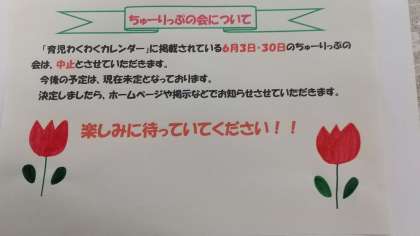 ちゅーりっぷの会について
「育児わくわくカレンダー」に掲載されている6月3日・30日のちゅーりっぷの
会は、中止とさせていただきます。
今後の予定は、現在未定となっております。
決定しましたら、ホームページや掲示などでお知らせさせていただきます。
楽しみに待っていてください！！